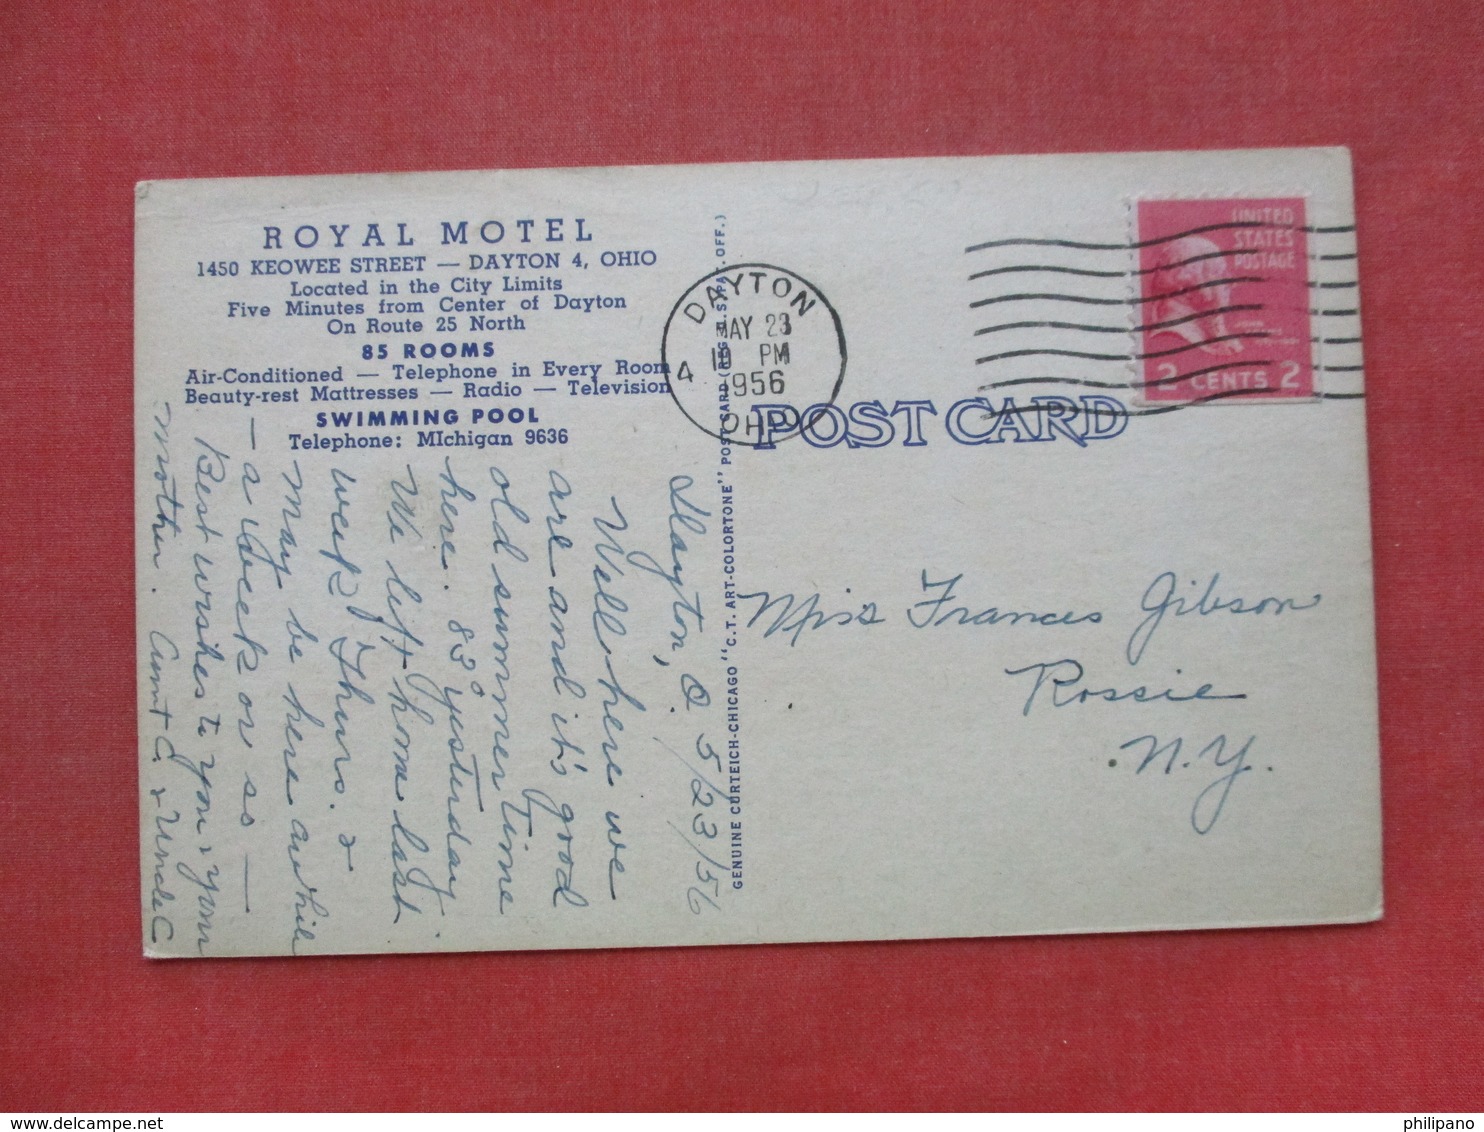 ROYAL MOTEL
1450 KEOWEE STREET — DAYTON 4, OHIO
Located in the City Limits
Five Minutes from Center of Dayton
On Route 25 North
85 ROOMS
Air-Conditioned — Telephone in Every Room
Beauty-rest Mattresses — Radio — Television
SWIMMING POOL
Telephone: MIchigan 9636
Dayton, O. 5/23/56
Well here we
are and it's good
old summer time
here. 83° yesterday.
We left home last
week Thurs. &
may be here awhile
— a week or so —
Best wishes to you & your
mother. Aunt C. & Uncle C
GENUINE CURTEICH-CHICAGO "C.T. ART-COLORTONE" POST CARD (REG. U.S. PAT. OFF.)
DAYTON
MAY 23
10 PM
1956
4
OHIO
UNITED
STATES
POSTAGE
2 CENTS 2
POST CARD
Miss Frances Gibson
Rossie
N.Y.
philipano